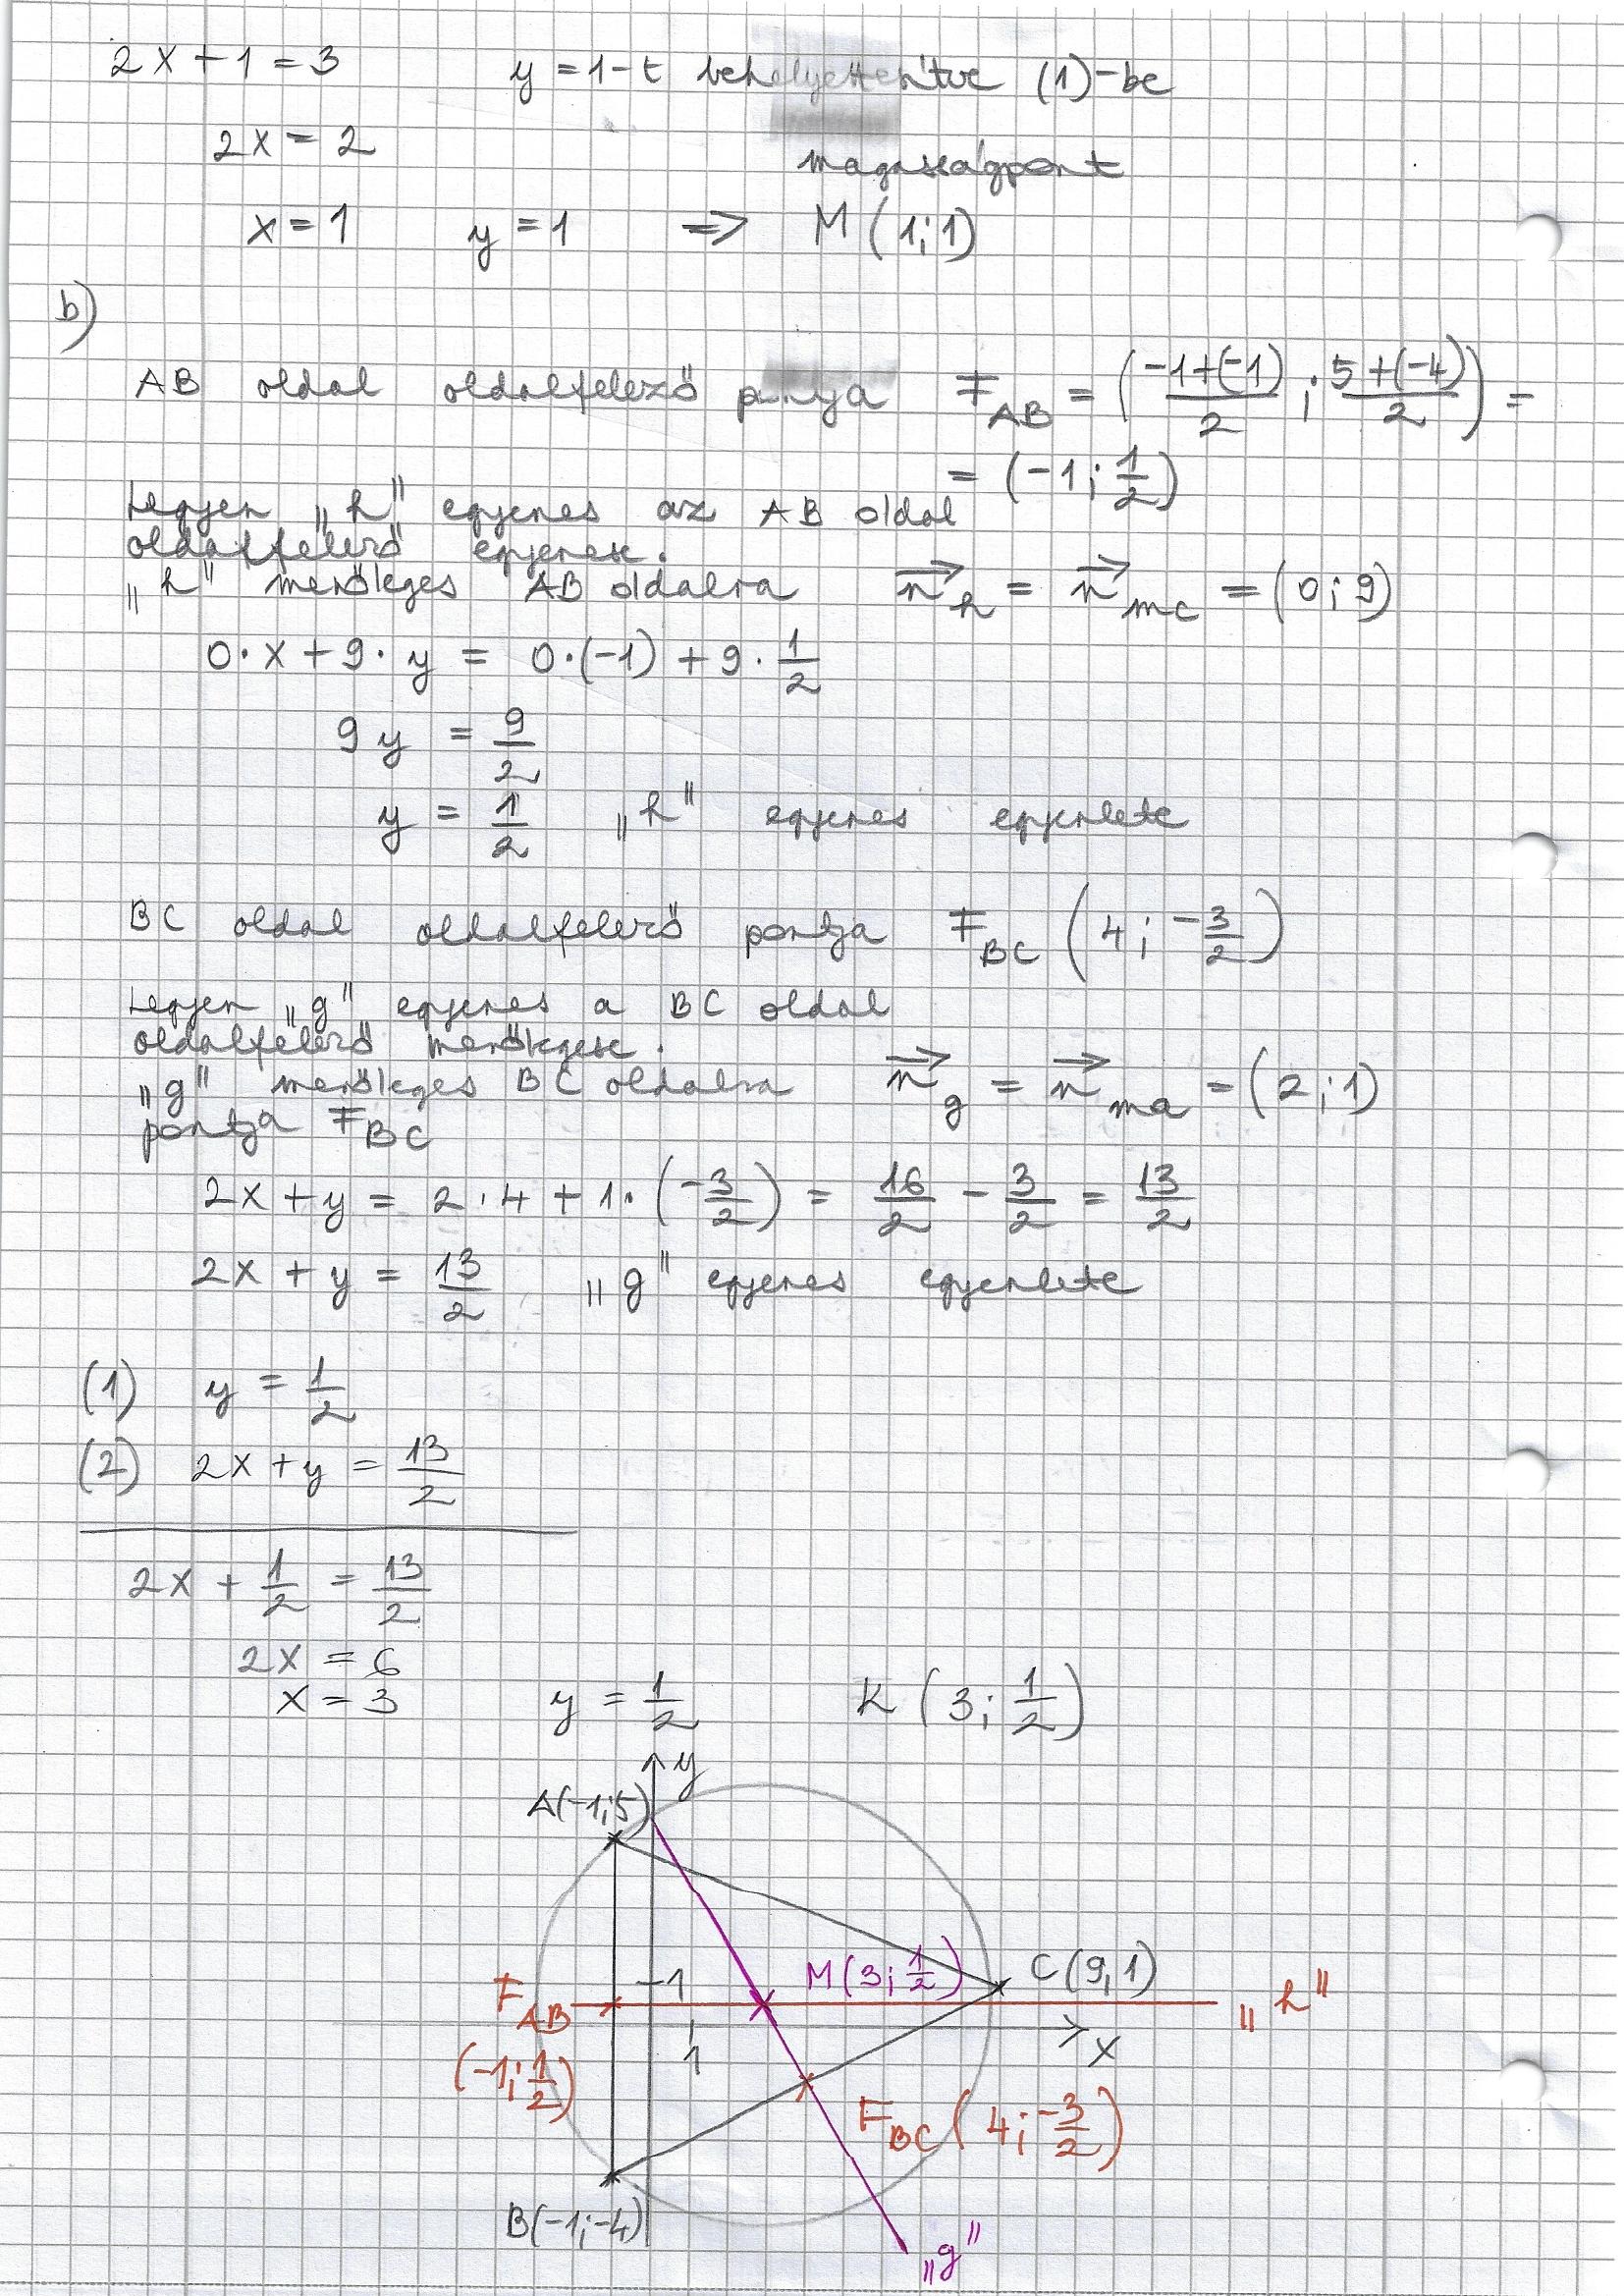 2x + 1 = 3 y = 1-t behelyettesítve (1)-be
2x = 2
magasságpont
x = 1 y = 1 => M (1;1)
b)
AB oldal oldalfelező pontja F_AB = ((-1+(-1))/2 ; (5+(-4))/2) =
= (-1; 1/2)
Legyen „h" egyenes az AB oldal
oldalfelező egyenese.
„h" merőleges AB oldalra n_h = n_mc = (0;9)
0·x + 9·y = 0·(-1) + 9·1/2
9y = 9/2
y = 1/2 „h" egyenes egyenlete
BC oldal oldalfelező pontja F_BC (4; -3/2)
Legyen „g" egyenes a BC oldal
oldalfelező merőlegese.
„g" merőleges BC oldalra n_g = n_ma = (2;1)
pontja F_BC
2x + y = 2·4 + 1·(-3/2) = 16/2 - 3/2 = 13/2
2x + y = 13/2 „g" egyenes egyenlete
(1) y = 1/2
(2) 2x + y = 13/2
2x + 1/2 = 13/2
2x = 6
x = 3 y = 1/2 K (3; 1/2)
y
A(-1;5)
M(3; 1/2) C(9,1)
1
F_AB „h"
x
1
(-1; 1/2)
F_BC (4; -3/2)
B(-1;-4)
„g"